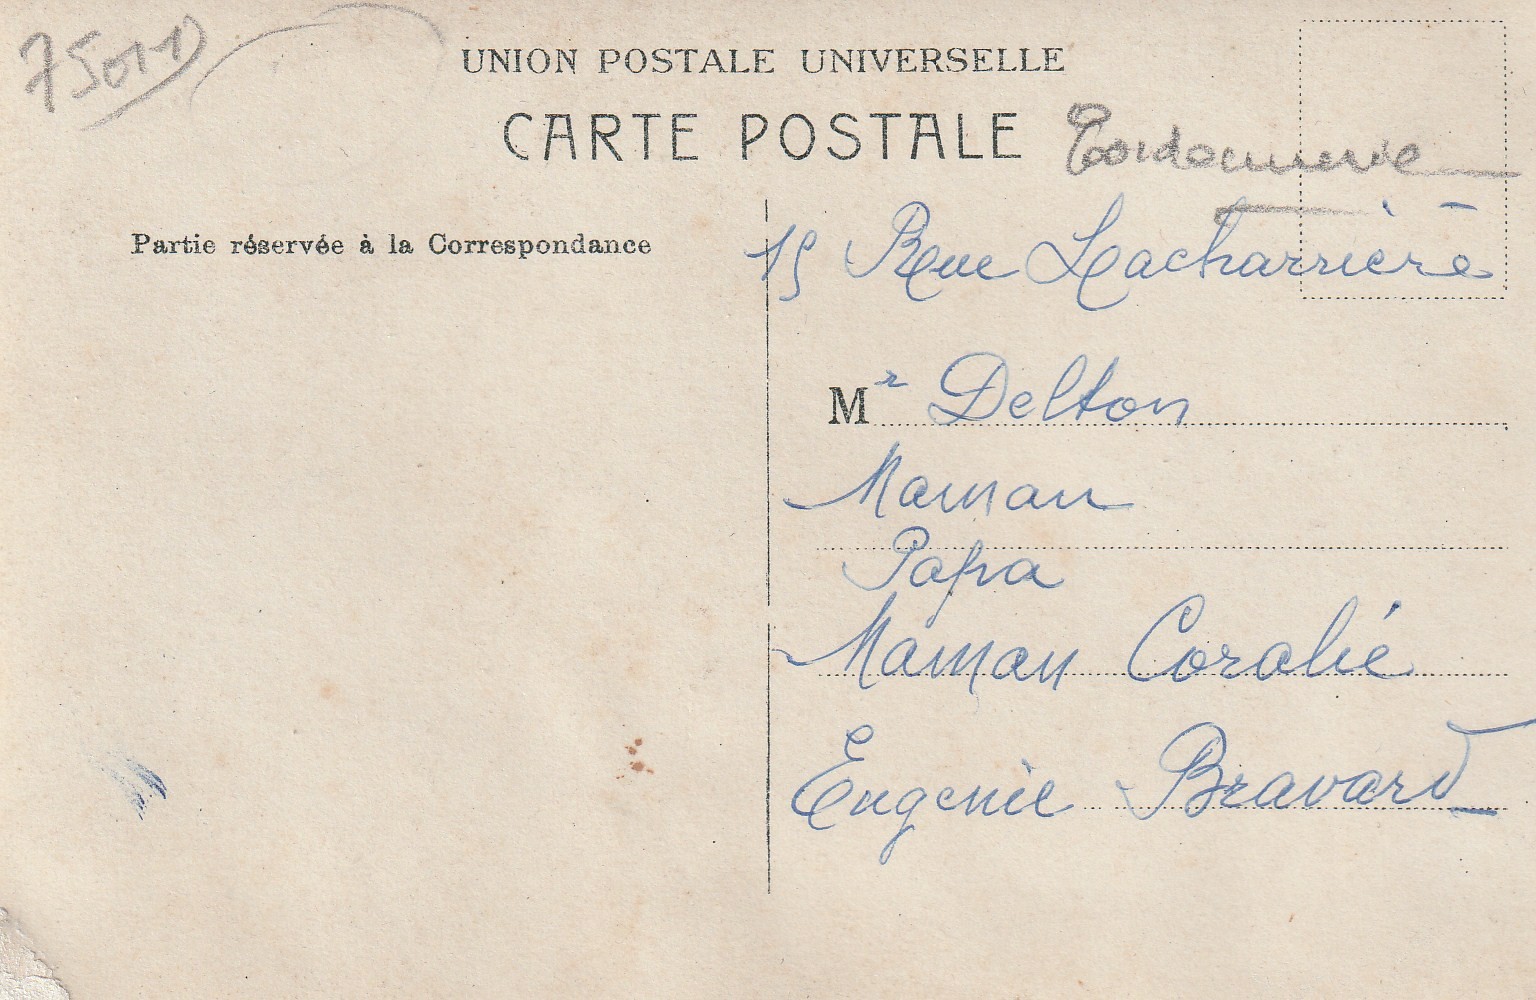 75011
UNION POSTALE UNIVERSELLE
CARTE POSTALE
Cordonnerie
Partie réservée à la Correspondance
15 Rue Lacharrière
Mr Delton
Maman
Papa
Maman Coralie
Eugenie Bravard